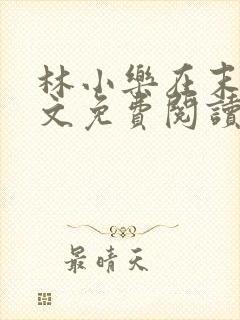 林小樂在末
文免費閱讀
最晴天